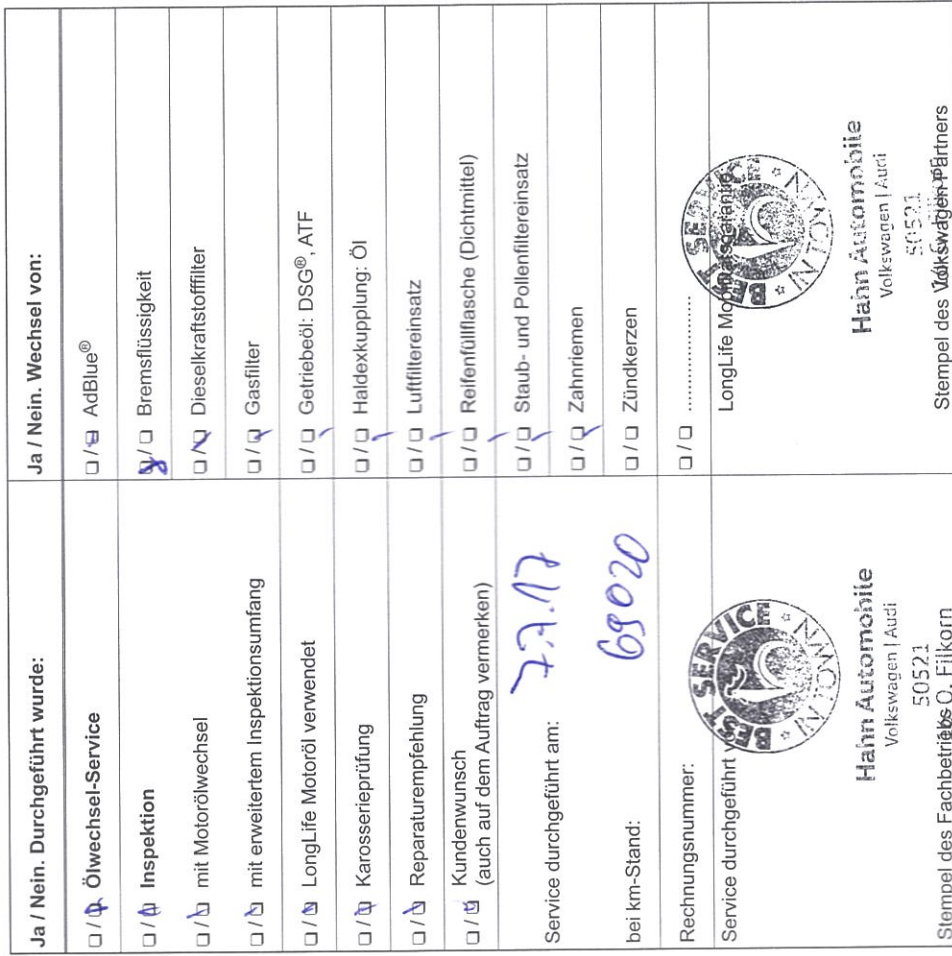 Ja / Nein. Durchgeführt wurde:
☐ / ☐ Ölwechsel-Service
☐ / ☐ Inspektion
☐ / ☐ mit Motorölwechsel
☐ / ☐ mit erweitertem Inspektionsumfang
☐ / ☐ LongLife Motoröl verwendet
☐ / ☐ Karosserieprüfung
☐ / ☐ Reparaturempfehlung
☐ / ☐ Kundenwunsch
(auch auf dem Auftrag vermerken)
Service durchgeführt am: 7.7.17
bei km-Stand: 69020
Rechnungsnummer:
Service durchgeführt
BEST SERVICE
IN TOWN
Hahn Automobile
Volkswagen | Audi
50521
O. Filkorn
Stempel des Fachbetriebs
Ja / Nein. Wechsel von:
☐ / ☐ AdBlue®
☐ / ☐ Bremsflüssigkeit
☐ / ☐ Dieselkraftstofffilter
☐ / ☐ Gasfilter
☐ / ☐ Getriebeöl: DSG®, ATF
☐ / ☐ Haldexkupplung: Öl
☐ / ☐ Luftfiltereinsatz
☐ / ☐ Reifenfüllflasche (Dichtmittel)
☐ / ☐ Staub- und Pollenfiltereinsatz
☐ / ☐ Zahnriemen
☐ / ☐ Zündkerzen
☐ / ☐ ........................
LongLife Mobilitätsgarantie
BEST SERVICE
IN TOWN
Hahn Automobile
Volkswagen | Audi
50521
Stempel des Volkswagen Partners